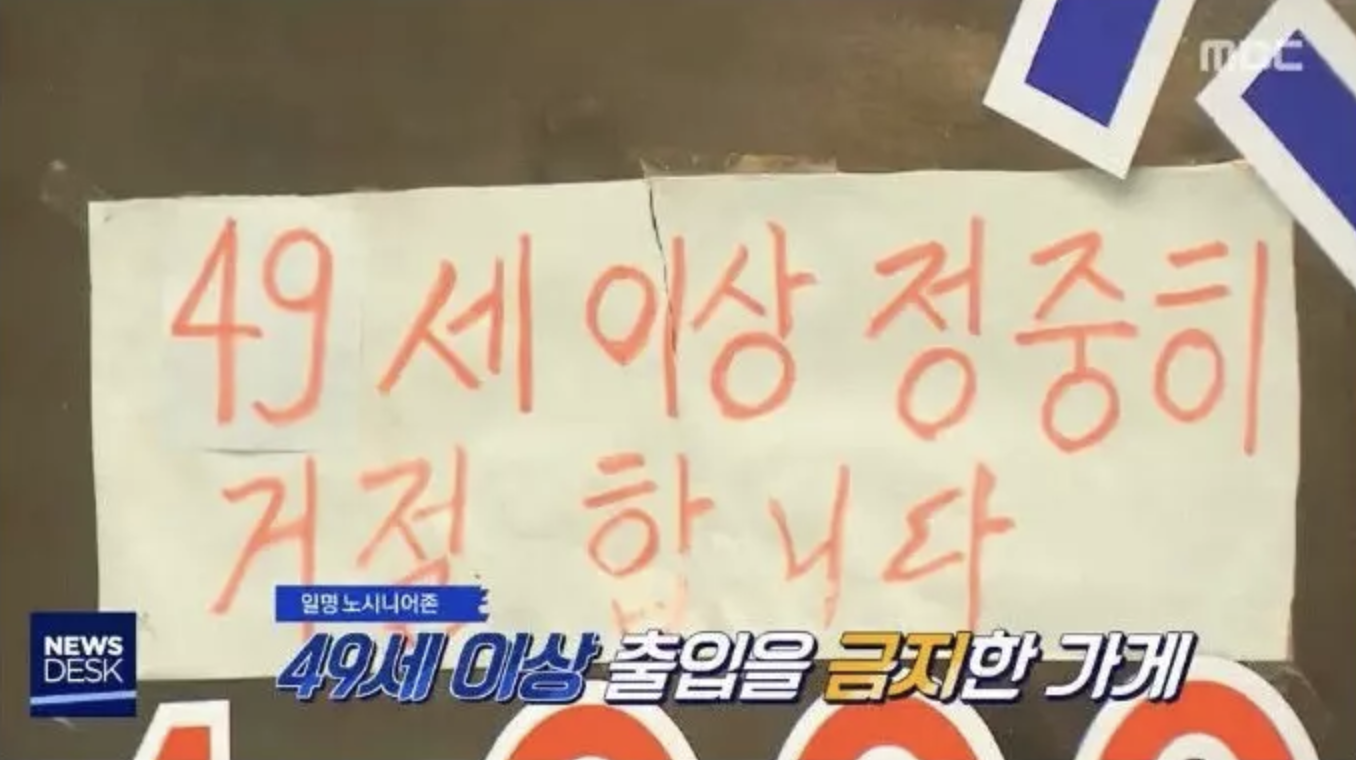 mbc
49세 이상 정중히
거절 합니다
일명 노시니어존
NEWS
DESK
49세 이상 출입을 금지한 가게